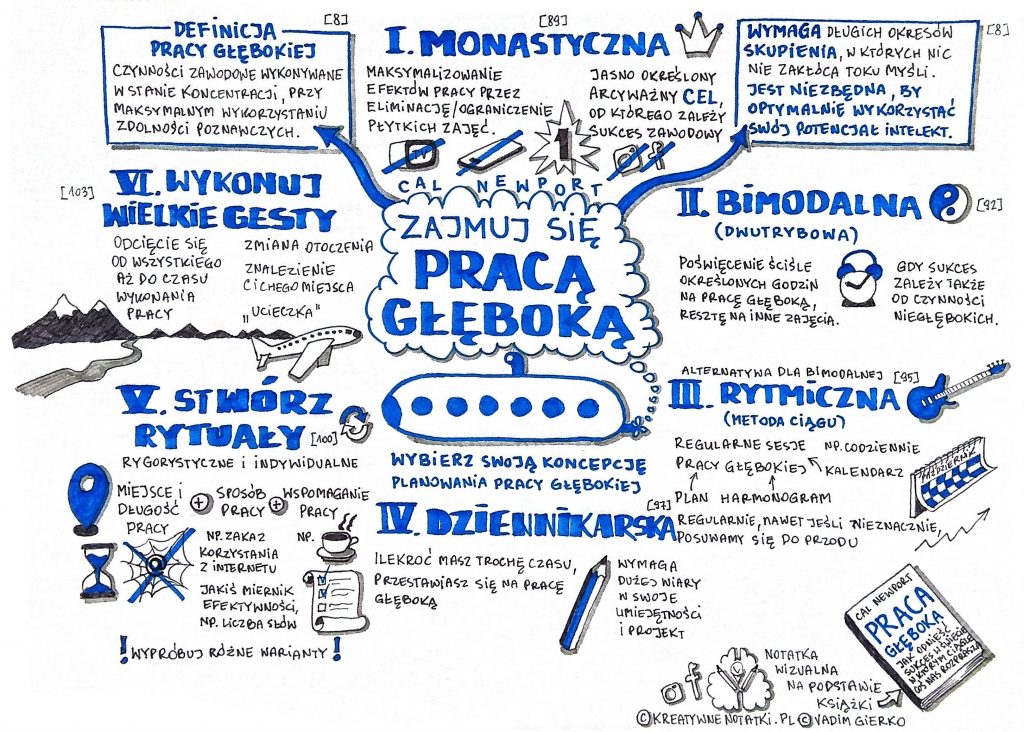 DEFINICJA
PRACY GŁĘBOKIEJ
[8]
CZYNNOŚCI ZAWODOWE WYKONYWANE
W STANIE KONCENTRACJI, PRZY
MAKSYMALNYM WYKORZYSTANIU
ZDOLNOŚCI POZNAWCZYCH.
[89]
I. MONASTYCZNA
MAKSYMALIZOWANIE
EFEKTÓW PRACY PRZEZ
ELIMINACJĘ/OGRANICZENIE
PŁYTKICH ZAJĘĆ.
JASNO OKREŚLONY
ARCYWAŻNY CEL,
OD KTÓREGO ZALEŻY
SUKCES ZAWODOWY
TV
1
f
[8]
WYMAGA DŁUGICH OKRESÓW
SKUPIENIA, W KTÓRYCH NIC
NIE ZAKŁÓCA TOKU MYŚLI.
JEST NIEZBĘDNA, BY
OPTYMALNIE WYKORZYSTAĆ
SWÓJ POTENCJAŁ INTELEKT.
CAL NEWPORT
ZAJMUJ SIĘ
PRACĄ
GŁĘBOKĄ
WYBIERZ SWOJĄ KONCEPCJĘ
PLANOWANIA PRACY GŁĘBOKIEJ
II. BIMODALNA
[92]
(DWUTRYBOWA)
POŚWIĘCENIE ŚCIŚLE
OKREŚLONYCH GODZIN
NA PRACĘ GŁĘBOKĄ,
RESZTĘ NA INNE ZAJĘCIA.
GDY SUKCES
ZALEŻY TAKŻE
OD CZYNNOŚCI
NIEGŁĘBOKICH.
ALTERNATYWA DLA BIMODALNEJ [95]
III. RYTMICZNA
(METODA CIĄGU)
REGULARNE SESJE
PRACY GŁĘBOKIEJ
NP. CODZIENNIE
KALENDARZ
PAŹDZIERNIK
PLAN HARMONOGRAM
REGULARNIE, NAWET JEŚLI NIEZNACZNIE,
POSUWAMY SIĘ DO PRZODU
[97]
IV. DZIENNIKARSKA
ILEKROĆ MASZ TROCHĘ CZASU,
PRZESTAWIASZ SIĘ NA PRACĘ
GŁĘBOKĄ
WYMAGA
DUŻEJ WIARY
W SWOJE
UMIEJĘTNOŚCI
I PROJEKT
V. STWÓRZ
RYTUAŁY
[100]
RYGORYSTYCZNE I INDYWIDUALNE
MIEJSCE I
DŁUGOŚĆ
PRACY
+
SPOSÓB
PRACY
+
WSPOMAGANIE
PRACY
@
NP. ZAKAZ
KORZYSTANIA
Z INTERNETU
JAKIŚ MIERNIK
EFEKTYWNOŚCI,
NP. LICZBA SŁÓW
NP.
! WYPRÓBUJ RÓŻNE WARIANTY !
[103]
VI. WYKONUJ
WIELKIE GESTY
ODCIĘCIE SIĘ
OD WSZYSTKIEGO
AŻ DO CZASU
WYKONANIA
PRACY
ZMIANA OTOCZENIA
ZNALEZIENIE
CICHEGO MIEJSCA
„UCIECZKA"
f
NOTATKA
WIZUALNA
NA PODSTAWIE
KSIĄŻKI
©KREATYWNENOTATKI.PL ©VADIM GIERKO
CAL NEWPORT
PRACA
GŁĘBOKA
JAK ODNIEŚĆ
SUKCES W ŚWIECIE
W KTÓRYM CIĄGLE
COŚ NAS ROZPRASZA